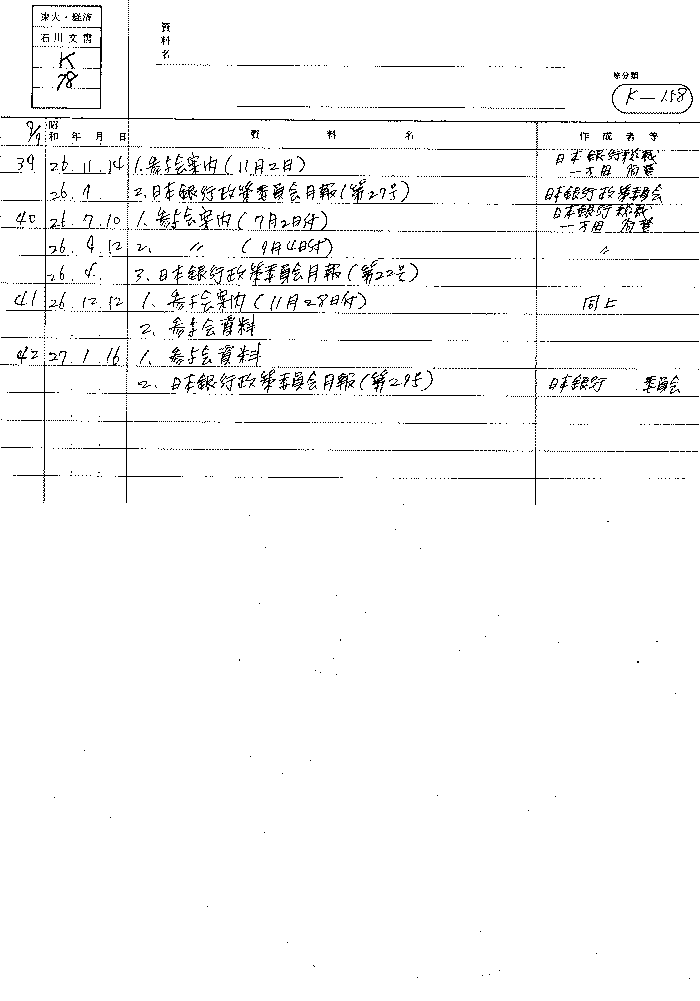 東大・経済
石川文書
K
78
資料名
等分類
K-158
昭和 年 月 日 資料名 作成者等
39 26.11.14 1.参与会案内(11月2日) 日本銀行総裁 一万田 尚登
26.9 2.日本銀行政策委員会月報(第27号) 日本銀行政策委員会
40 26.7.10 1.参与会案内(7月2日付) 日本銀行総裁 一万田 尚登
26.9.12 2. 〃 (9月4日付) 〃
26.4. 3.日本銀行政策委員会月報(第22号)
41 26.12.12 1.参与会案内(11月28日付) 同上
2.参与会資料
42 27.1.16 1.参与会資料
2.日本銀行政策委員会月報(第29号) 日本銀行 委員会